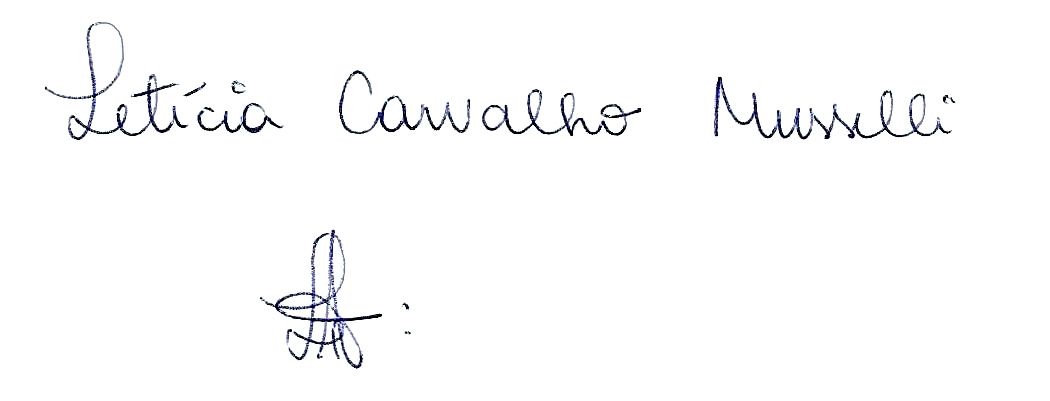 Letícia Carvalho Musselli